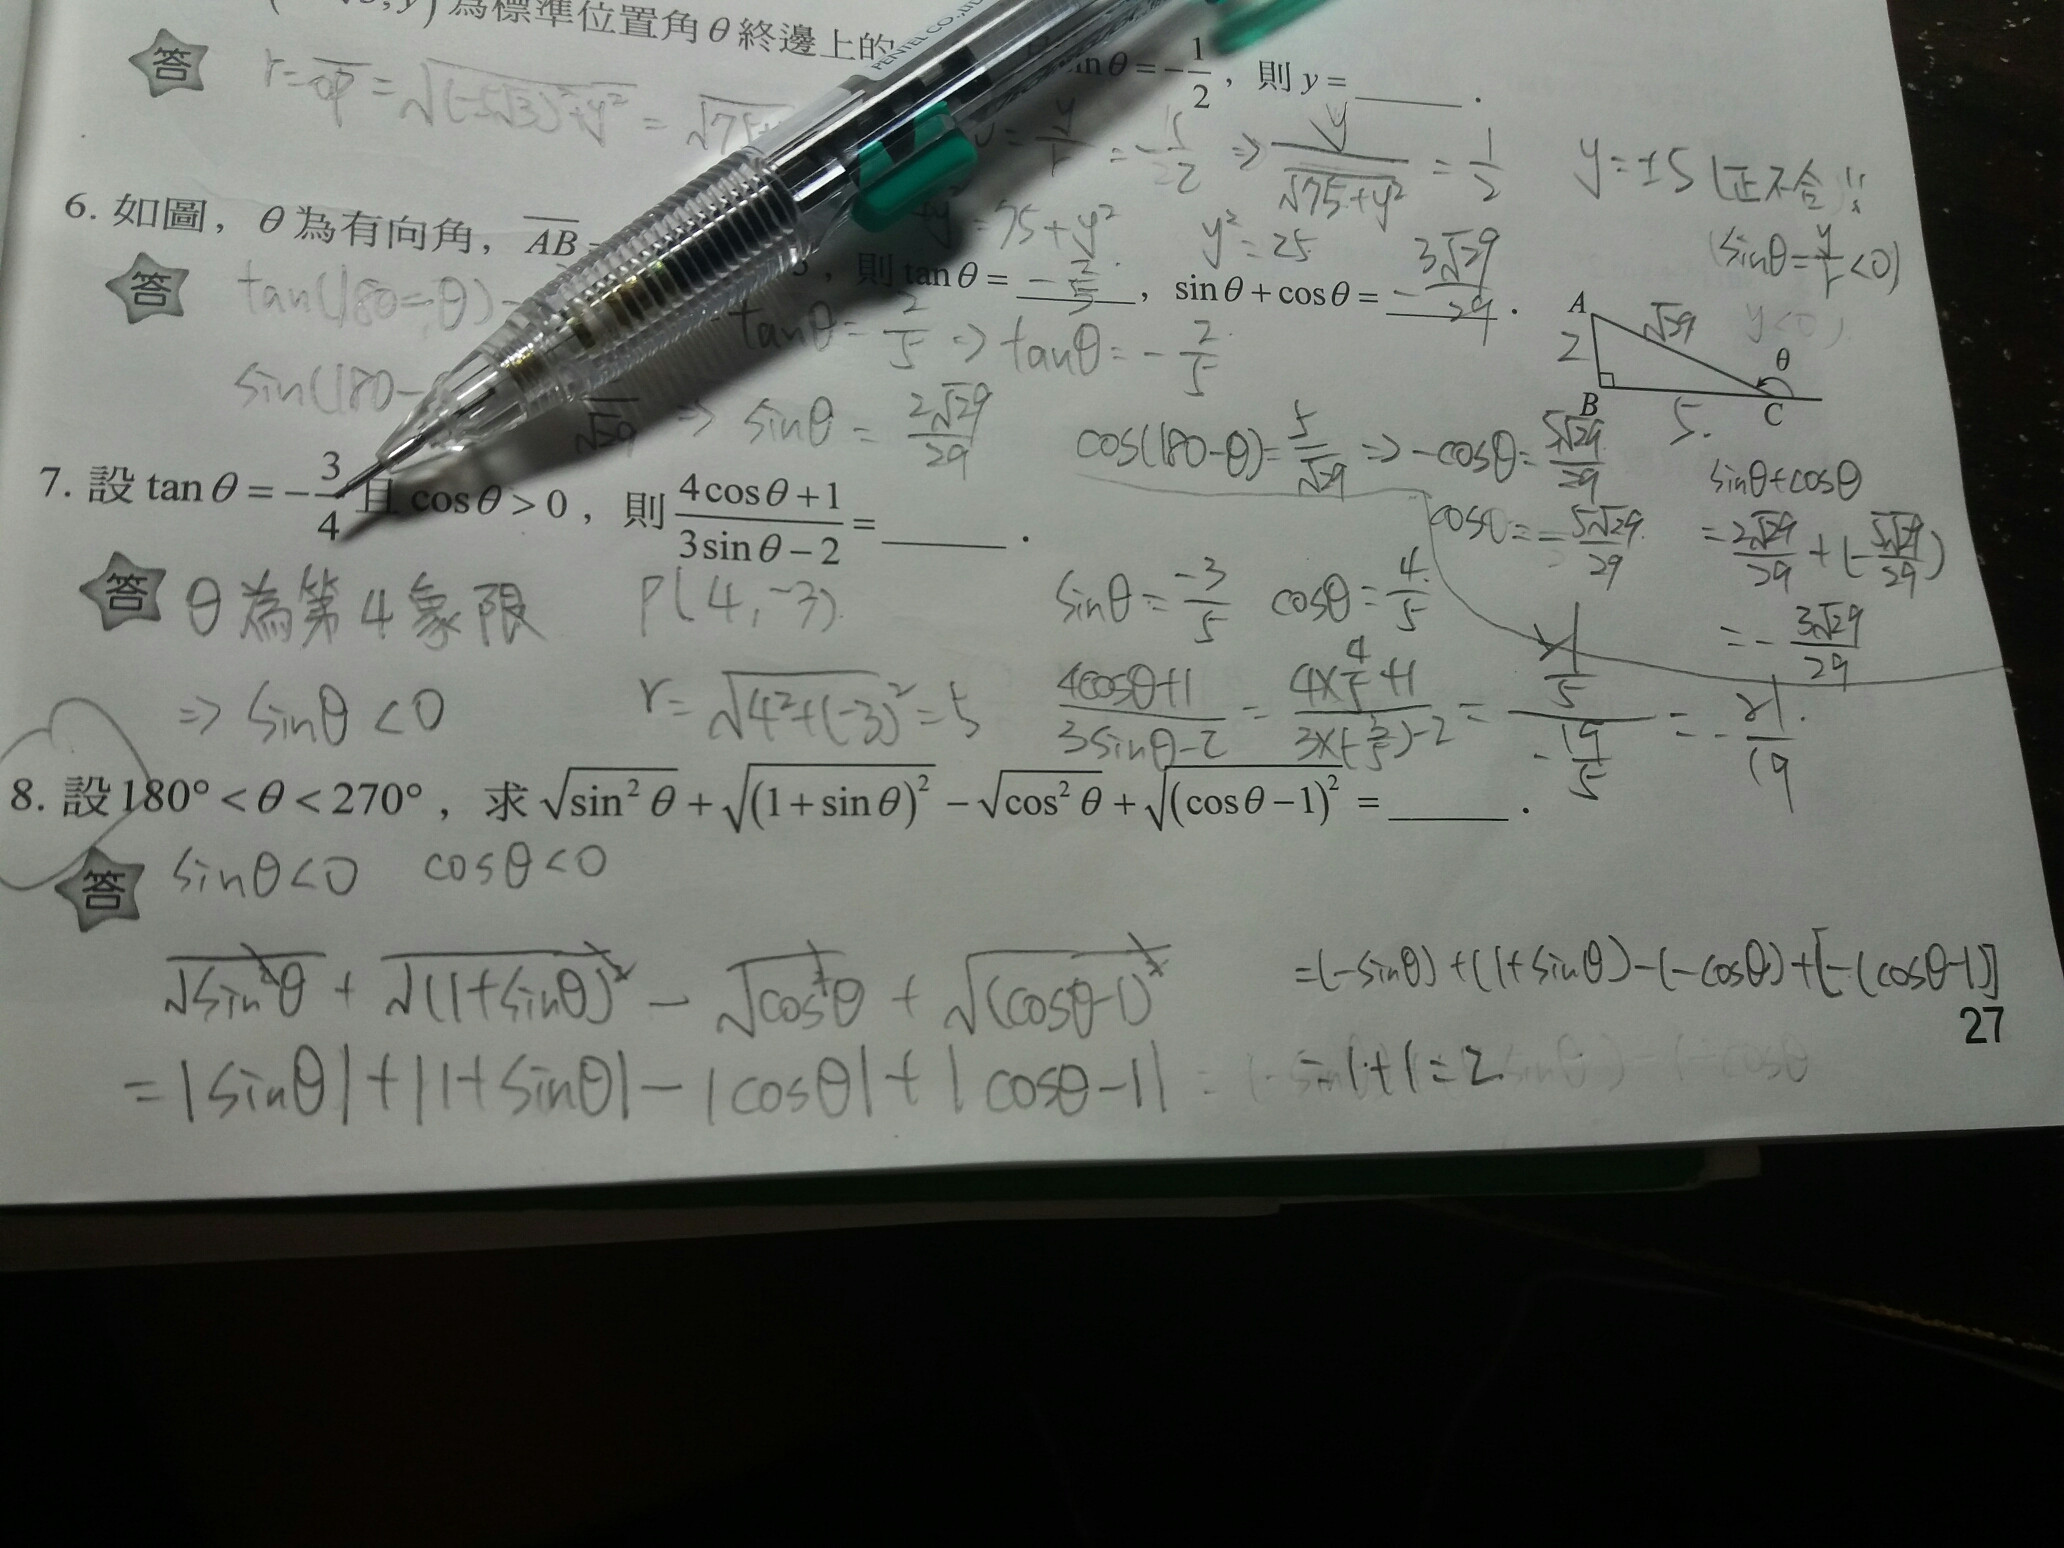 , y) 為標準位置角 θ 終邊上的 sinθ = -1/2, 則 y = ______.
PENTEL CO.,
答 r = OP = √((-5√3)²+y²) = √75+
= y/r = -1/2 ⇒ y/√(75+y²) = 1/2 y = ±5 (正不合)
y² = 75 + y² y² = 25 (sinθ = y/r < 0)
y < 0
6. 如圖, θ 為有向角, AB = , 則 tanθ = -2/5, sinθ + cosθ = -3√29/29.
答 tan(180-θ) = tanθ = 2/5 ⇒ tanθ = -2/5
A 2 √29 θ B 5. C
sin(180- √29 ⇒ sinθ = 2√29/29 cos(180-θ) = 5/√29 ⇒ -cosθ = 5√29/29
cosθ = -5√29/29
sinθ + cosθ
= 2√29/29 + (-5√29/29)
= -3√29/29
7. 設 tanθ = -3/4 且 cosθ > 0, 則 (4cosθ+1)/(3sinθ-2) = ______.
答 θ 為第 4 象限 P(4, -3) sinθ = -3/5 cosθ = 4/5
⇒ sinθ < 0 r = √(4²+(-3)²) = 5 (4cosθ+1)/(3sinθ-2) = (4×4/5+1)/(3×(-3/5)-2) = (21/5)/(-19/5) = -21/19
8. 設 180° < θ < 270°, 求 √(sin²θ) + √((1+sinθ)²) - √(cos²θ) + √((cosθ-1)²) = ______.
答 sinθ < 0 cosθ < 0
√(sin²θ) + √((1+sinθ)²) - √(cos²θ) + √((cosθ-1)²)
= |sinθ| + |1+sinθ| - |cosθ| + |cosθ-1|
= (-sinθ) + (1+sinθ) - (-cosθ) + [-(cosθ-1)]
= 1+1 = 2
27